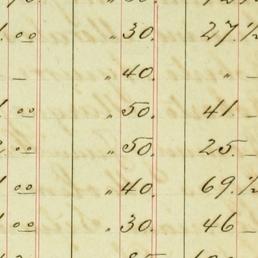 .00 " 30. 27.½
— " 40. " —
.00 " 50. 41. —
.00 " 50. 25. —
.00 " 40. 69.½
.00 " 30. 46 —